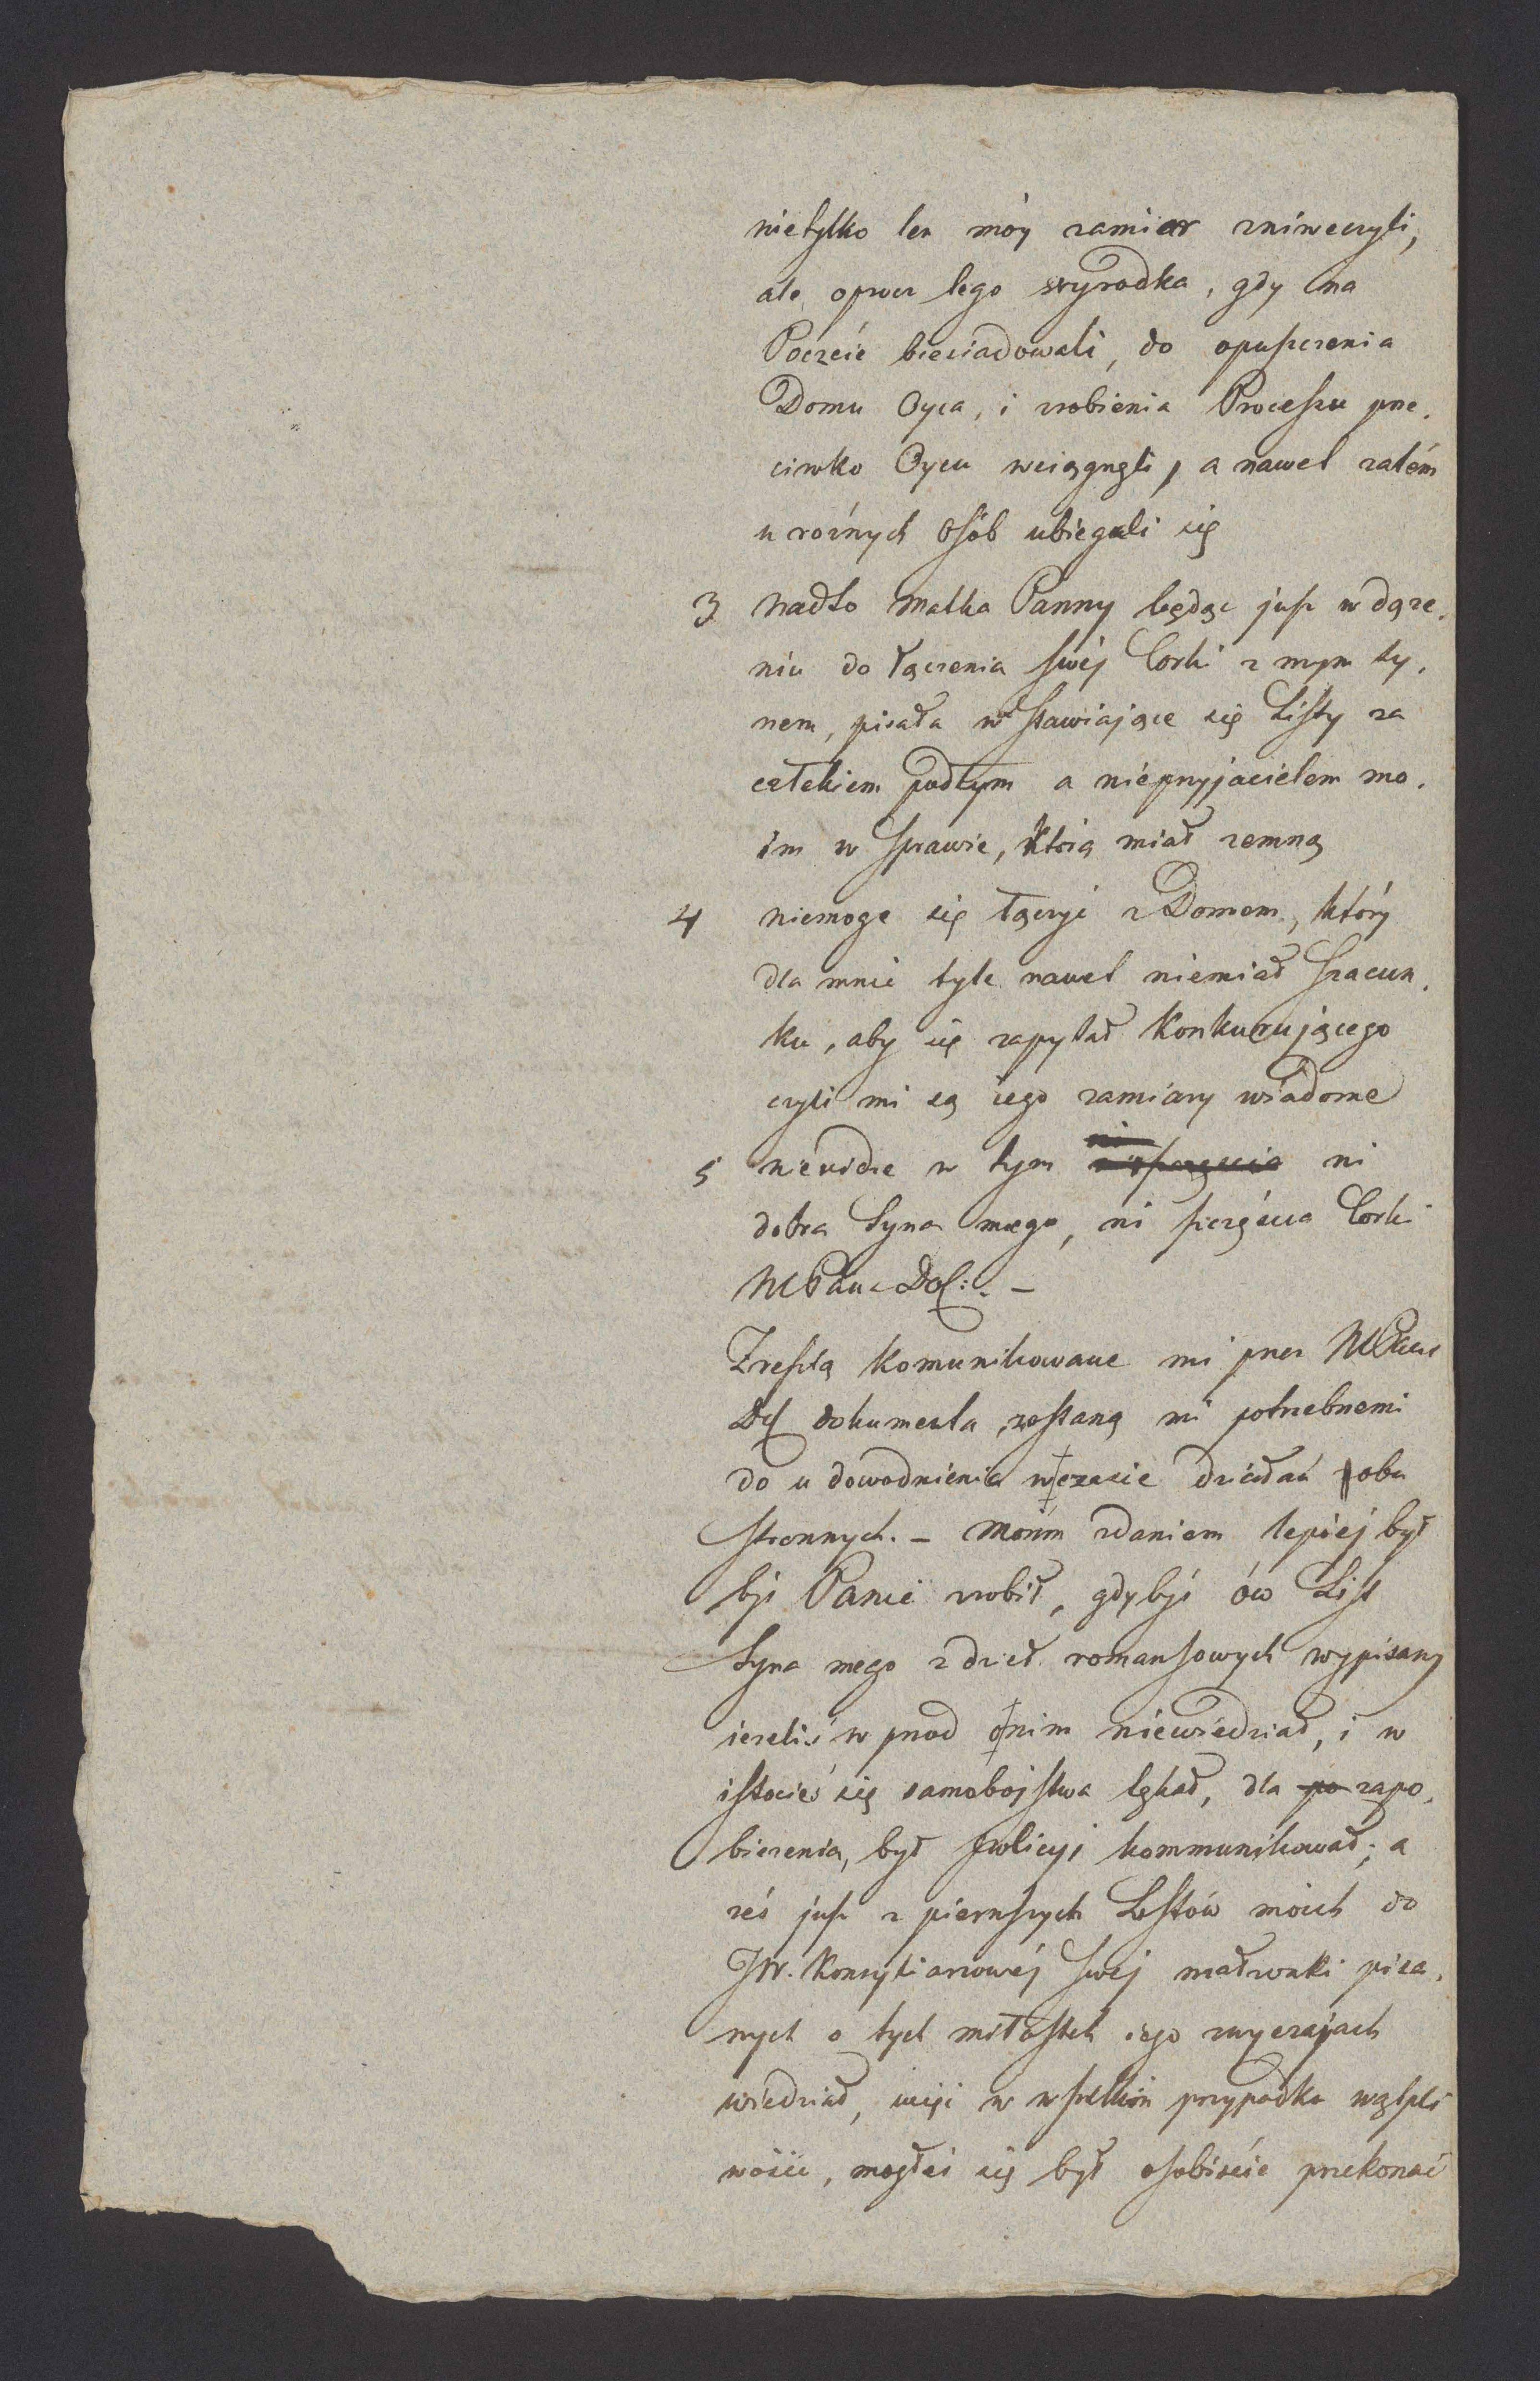 nietylko ten móy zamiar zniweczyli,
ale oprocz tego wyrodka, gdy na
Poczcie biesiadowali, do opuszczenia
Domu Oyca, i zrobienia Processu prze.
ciwko Oycu wciągnęli, a nawet zatém
u roźnych Osób ubiegali się
3 nadto Matka Panny będąc jusz w dąże.
niu do łączenia swéj Corki z mym sy.
nem, pisała wstawiające się Listy za
człekiem podłym a nieprzyjacielem mo.
im w sprawie, którą miał zemną
4 niemogę się łączyć z Domem, który
dla mnie tyle nawet niemiał szacun.
ku, aby się zapytał Konkurującego
czyli mi są iego zamiary wiadome
5 niewidzę w tym ni
dobra Syna mego, ni szczęścia Corki
WPana Dob:. –
Zresztą komunikowane mi przez WPana
Db dokumenta, zostaną mi potrzebnemi
do udowodnienia w czasie działań obu
stronnych. – Moim zdaniem lepiej był
byś Panie zrobił, gdybyś ów List
Syna mego z dzieł romansowych wypisany
ieżeliś wprzód o nim niewiedział, i w
istocieś się samobójstwa lękał, dla po zapo.
bieżenia, był policyi kommunikował; a
żeś jusz z pierwszych Listów moich do
JW. Konsyliarzowéj swej małżonki pisa.
nych o tych miłostek iego zwyczajach
wiedział, więc w wszelkim przypadku wątpli
wości, mogłeś się był osobiście przekonać